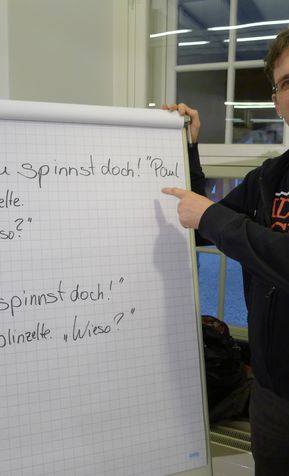 u spinnst doch!" Paul
elte.
so?"
spinnst doch!"
blinzelte. „Wieso?"